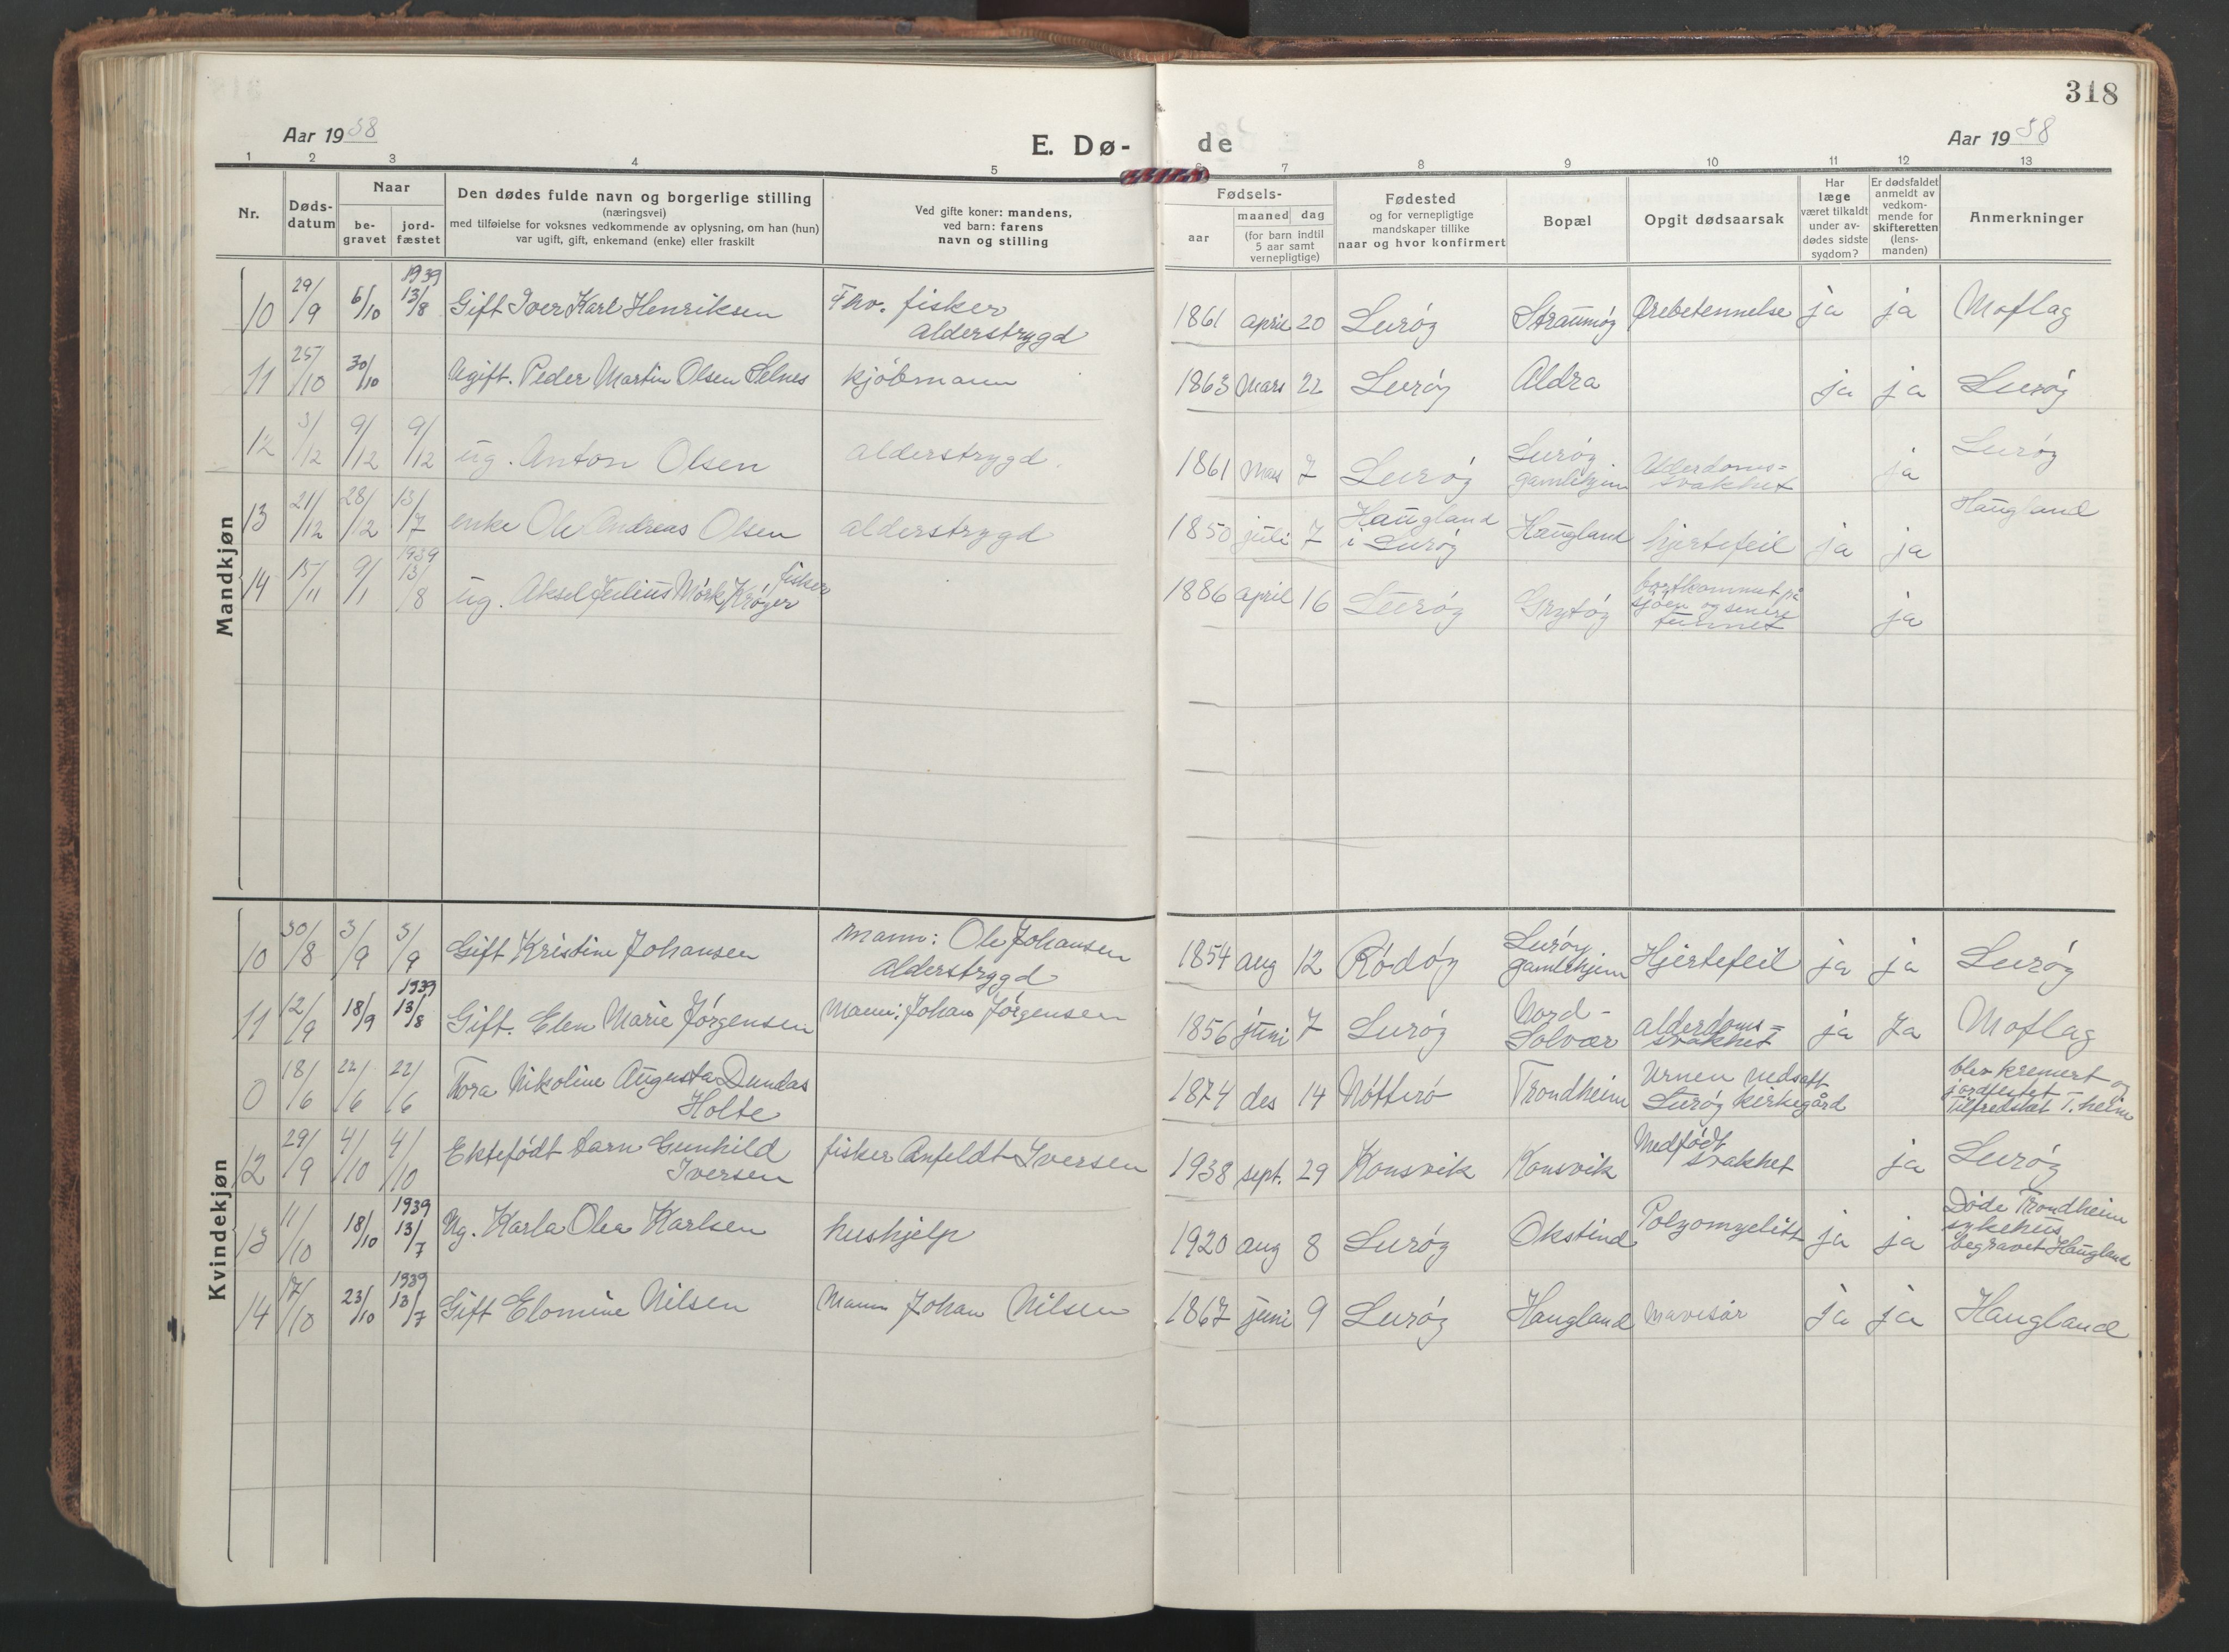 318
Aar 1938
E. Dø-
de
Aar 1938
1 2 3 4 5 6 7 8 9 10 11 12 13
Nr.
Døds-
datum
Naar
be-
gravet
jord-
fæstet
Den dødes fulde navn og borgerlige stilling
(næringsvei)
med tilføielse for voksnes vedkommende av oplysning, om han (hun)
var ugift, gift, enkemand (enke) eller fraskilt
Ved gifte koner: mandens,
ved barn: farens
navn og stilling
Fødsels-
aar
maaned dag
(for barn indtil
5 aar samt
vernepligtige)
Fødested
og for vernepligtige
mandskaper tillike
naar og hvor konfirmert
Bopæl
Opgit dødsaarsak
Har
læge
været tilkaldt
under av-
dødes sidste
sygdom?
Er dødsfaldet
anmeldt av
vedkom-
mende for
skifteretten
(lens-
manden)
Anmerkninger
Mandkjøn
10 29/9 6/10 1939 13/8 Gift Iver Karl Henriksen Fhv. fisker
alderstrygd
1861 april 20 Lurøy Straumøy Ørebetennelse ja ja Moflag
11 25/10 30/10 Ugift. Peder Martin Olsen Selnes kjøbmann 1863 Mars 22 Lurøy Aldra ja ja Lurøy
12 3/12 9/12 9/12 ug. Anton Olsen alderstrygd. 1861 Mars 7 Lurøy Lurøy
gamlehjem
Alderdoms=
svakhet
ja Lurøy
13 21/12 28/12 13/7 enke Ole Andreas Olsen alderstrygd 1850 juli 7 Haugland
i Lurøy
Haugland hjertefeil ja ja Haugland
14 15/11 9/1 1939 13/8 ug. Aksel Julius Mørk Krøyer, fisker 1886 april 16 Lurøy Grytøy bortkommet på
sjøen og senere
funnet
ja
Kvindekjøn
10 30/8 3/9 3/9 Gift Kristine Johansen mann: Ole Johansen
Alderstrygd
1854 aug 12 Rødøy Lurøy
gamlehjem
Hjertefeil ja ja Lurøy
11 12/9 18/9 1939 13/8 Gift. Elen Marie Jørgensen Mann: Johan Jørgensen 1856 juni 7 Lurøy Nord-
Solvær
alderdoms=
svakhet
ja Ja Moflag
0 18/6 22/6 22/6 Tora Nikoline Augusta Dundas
Holte
1874 des 14 Nøtterø Trondheim Urnen nedsatt
Lurøy kirkegård
blev kremert og
jordfestet
Tilfredshet T.heim
12 29/9 4/10 4/10 Ektefødt barn Gunhild
Iversen
fisker Anfeldt Iversen 1938 sept. 29 Konsvik Konsvik Medfødt
svakhet
ja Lurøy
13 11/10 18/10 1939 13/7 Ug. Karla Olea Karlsen hushjelp 1920 aug 8 Lurøy Okstind Polyomyelitt ja ja Døde Trondheim
sykehus
begravet Haugland
14 17/10 23/10 1939 13/7 Gift Elomine Nilsen Mann Johan Nilsen 1867 juni 9 Lurøy Haugland Mavesår ja ja Haugland